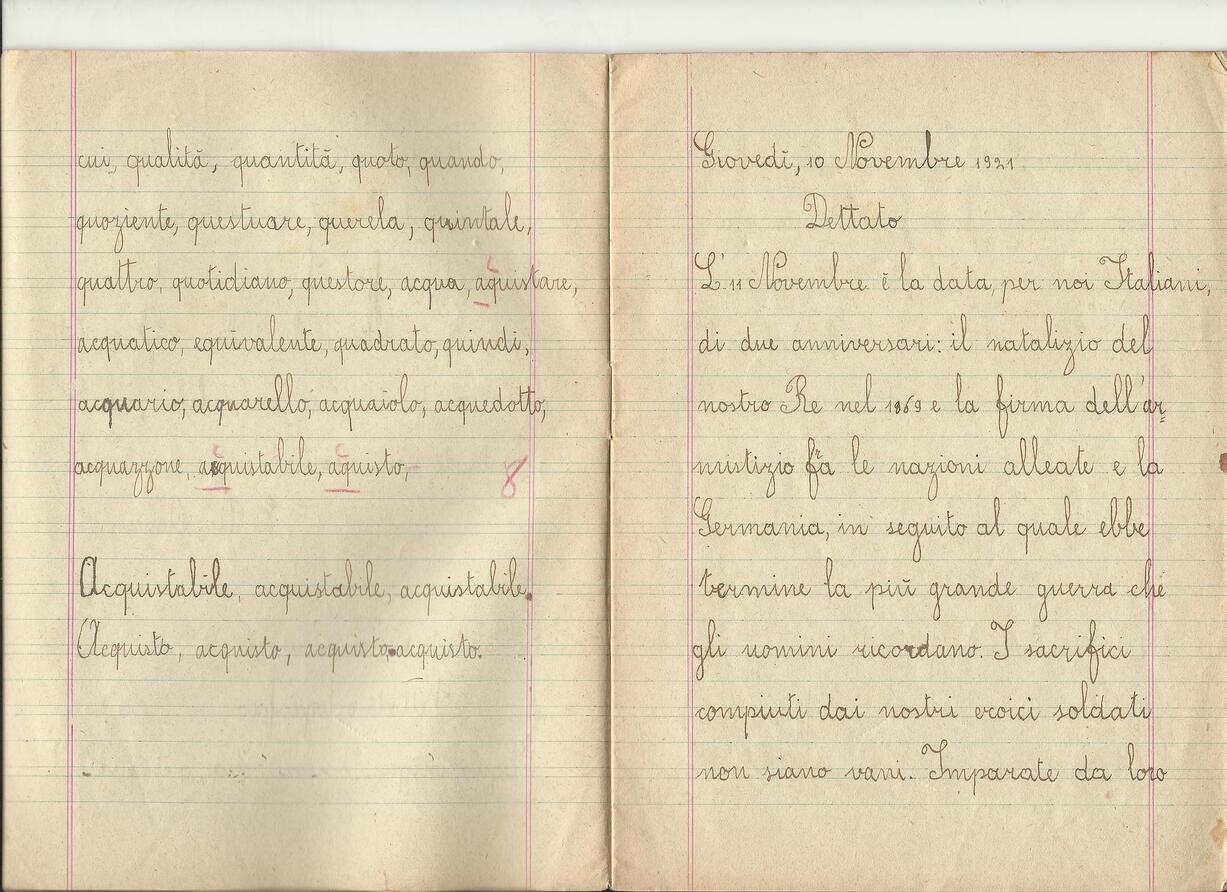 cui, qualità, quantità, quoto, quando,
quoziente, questuare, querela, quintale,
quattro, quotidiano, questore, acqua, acquistare,
acquatico, equivalente, quadrato, quindi,
acquario, acquarello, acquaiolo, acquedotto,
acquazzone, acquistabile, acquisto,
8
Acquistabile, acquistabile, acquistabile.
Acquisto, acquisto, acquisto, acquisto.
Giovedì, 10 Novembre 1921
Dettato
L'11 Novembre è la data, per noi Italiani,
di due anniversari: il natalizio del
nostro Re nel 1869 e la firma dell'ar=
mistizio fra le nazioni alleate e la
Germania, in seguito al quale ebbe
termine la più grande guerra che
gli uomini ricordano. I sacrifici
compiuti dai nostri eroici soldati
non siano vani. Imparate da loro